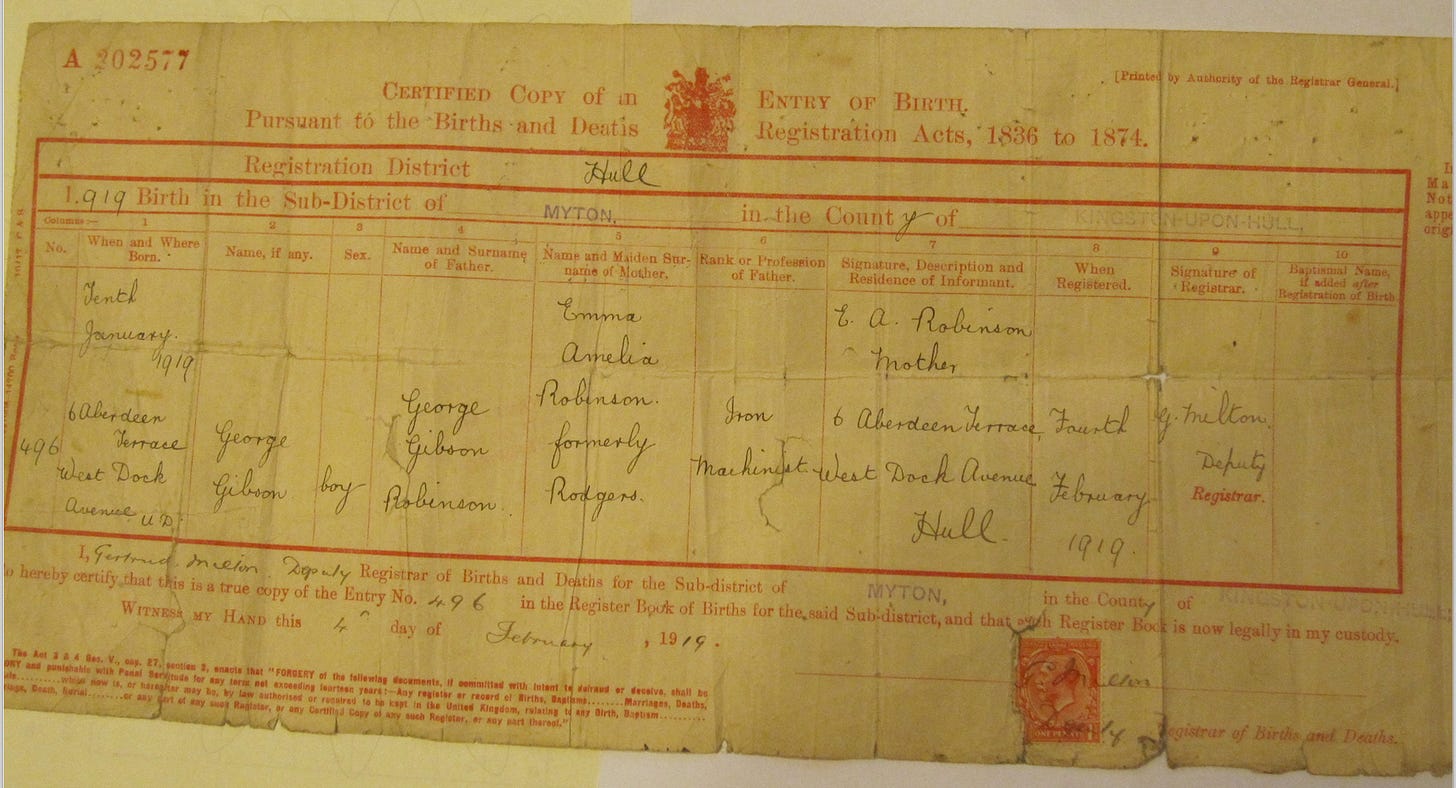 A 202577
[Printed by Authority of the Registrar General.]
CERTIFIED COPY of an ENTRY OF BIRTH.
Pursuant to the Births and Deaths Registration Acts, 1836 to 1874.
Registration District Hull
1.919 Birth in the Sub-District of MYTON, in the County of KINGSTON-UPON-HULL,
Columns:— 1 2 3 4 5 6 7 8 9 10
No.
When and Where
Born.
Name, if any.
Sex.
Name and Surname
of Father.
Name and Maiden Sur-
name of Mother.
Rank or Profession
of Father.
Signature, Description and
Residence of Informant.
When
Registered.
Signature of
Registrar.
Baptismal Name,
if added after
Registration of Birth.
496
Tenth
January.
1919
6 Aberdeen
Terrace
West Dock
Avenue U.D.
George
Gibson
boy
George
Gibson
Robinson.
Emma
Amelia
Robinson.
formerly
Rodgers.
Iron
Machinist.
E. A. Robinson
Mother
6 Aberdeen Terrace
West Dock Avenue
Hull.
Fourth
February
1919.
G. Milton.
Deputy
Registrar.
I, Gertrud Milton. Deputy Registrar of Births and Deaths for the Sub-district of MYTON, in the County of KINGSTON-UPON-HULL
o hereby certify that this is a true copy of the Entry No. 496 in the Register Book of Births for the said Sub-district, and that such Register Book is now legally in my custody.
WITNESS MY HAND this 4 day of February, 1919.
The Act 3 & 4 Geo. V., cap. 27, section 2, enacts that "FORGERY of the following documents, if committed with intent to defraud or deceive, shall be
ONY and punishable with Penal Servitude for any term not exceeding fourteen years:—Any register or record of Births, Baptisms........Marriages, Deaths,
........which now is, or hereafter may be, by law authorised or required to be kept in the United Kingdom, relating to any Birth, Baptism..........
riage, Death, Burial........or any part of any such Register, or any Certified Copy of any such Register, or any part thereof."
Milton
ONE PENNY
egistrar of Births and Deaths.